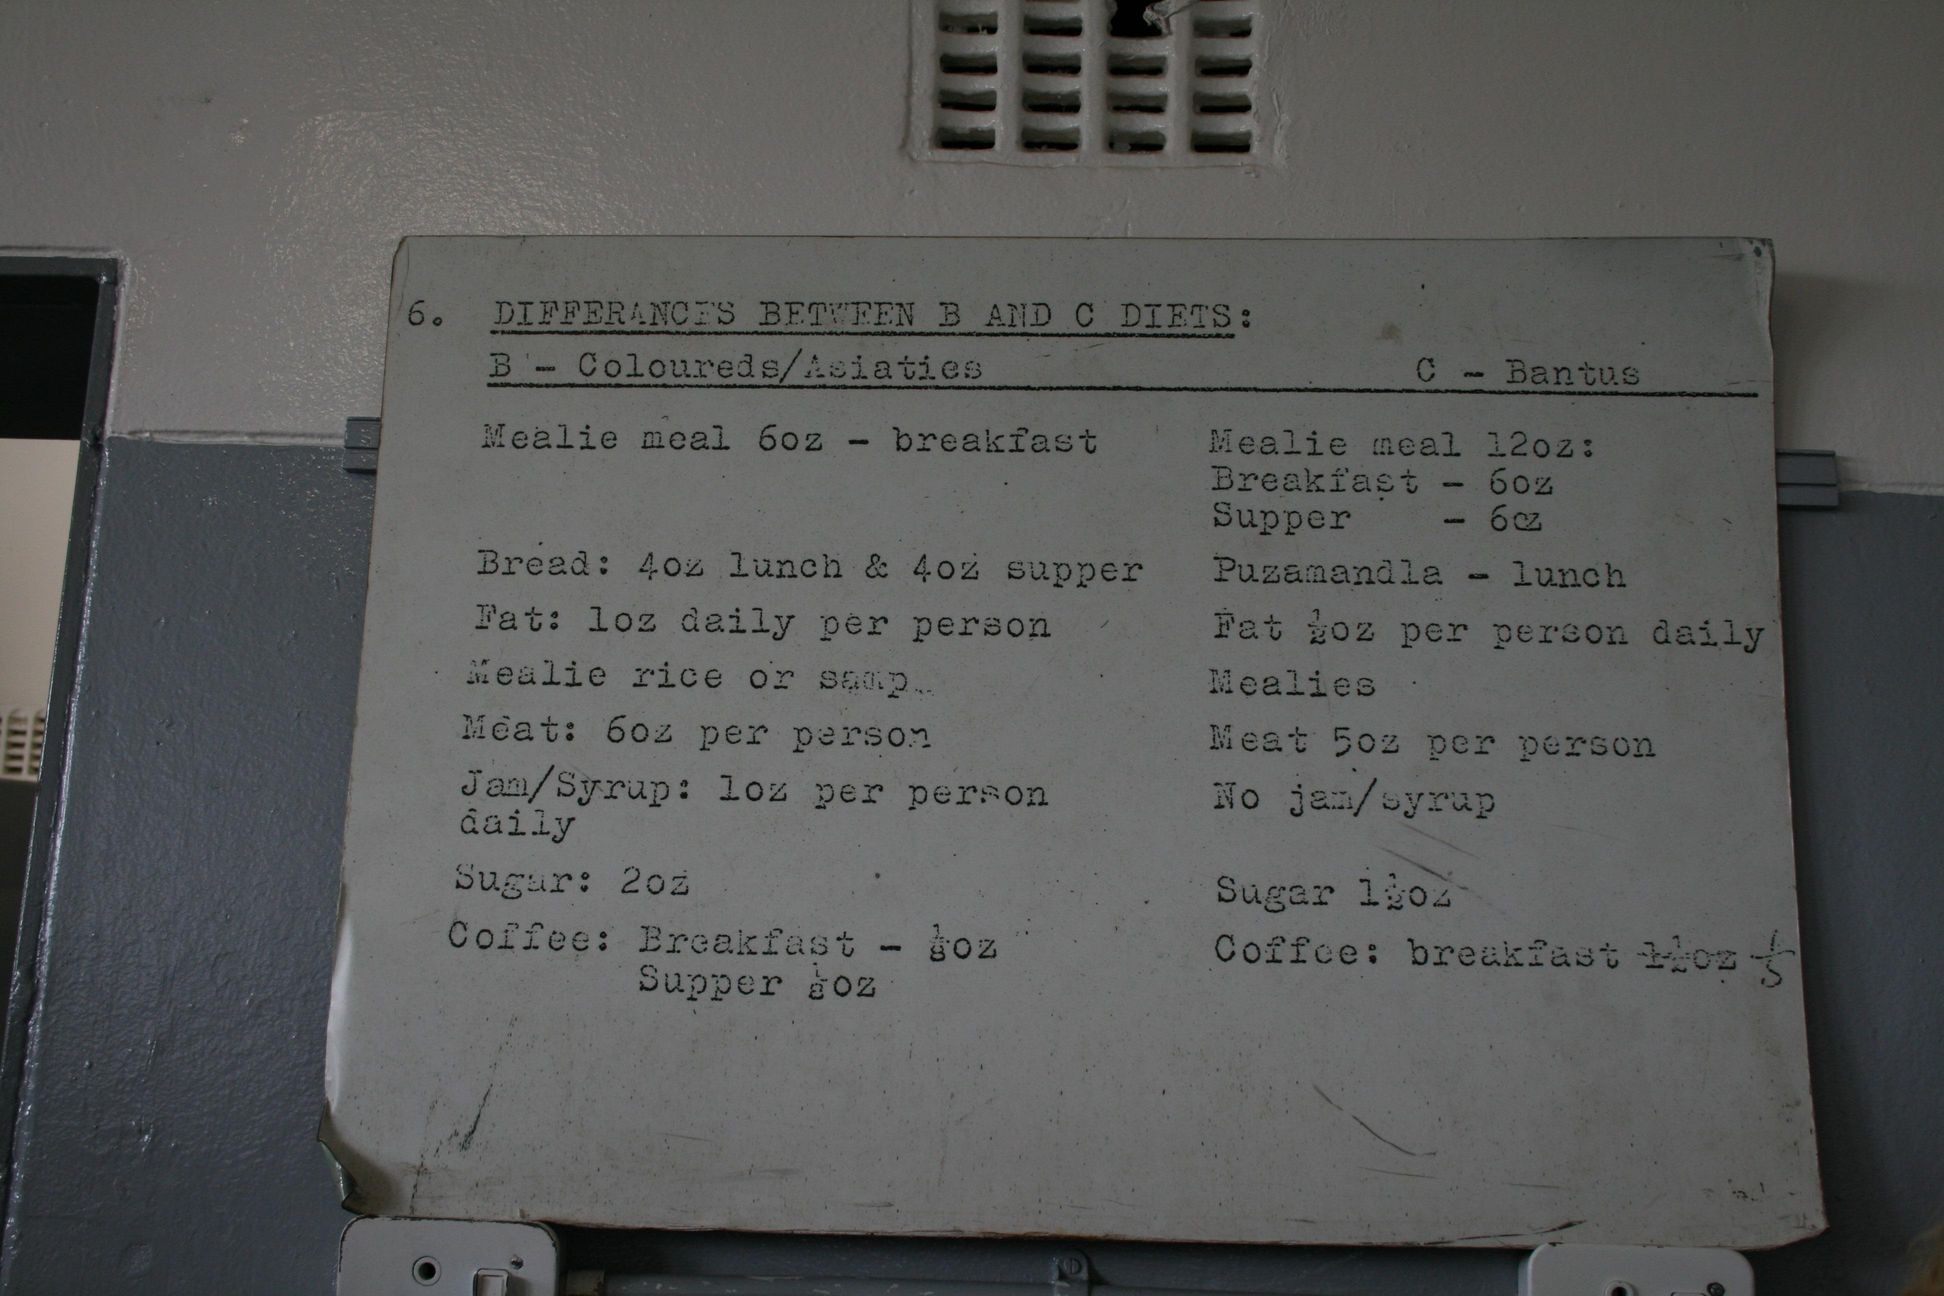 6. DIFFERANCES BETWEEN B AND C DIETS:
B - Coloureds/Asiaties C - Bantus
Mealie meal 6oz - breakfast
Mealie meal 12oz:
Breakfast - 6oz
Supper - 6oz
Bread: 4oz lunch & 4oz supper
Puzamandla - lunch
Fat: 1oz daily per person
Fat ½oz per person daily
Mealie rice or samp
Mealies
Meat: 6oz per person
Meat 5oz per person
Jam/Syrup: 1oz per person
daily
No jam/syrup
Sugar: 2oz
Sugar 1½oz
Coffee: Breakfast - ⅛oz
Supper ⅛oz
Coffee: breakfast 1½oz